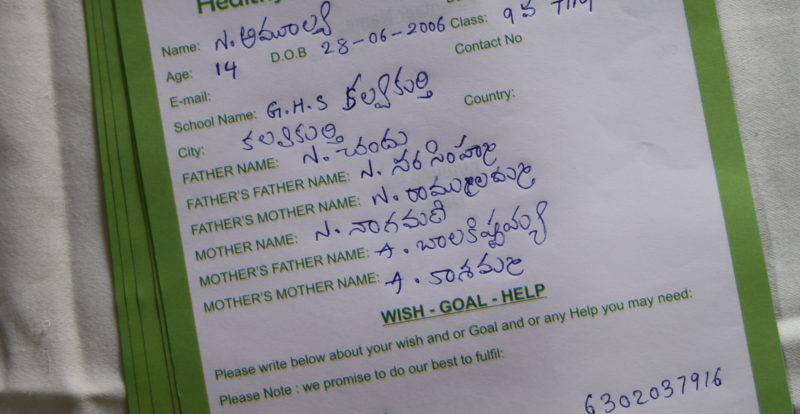 Name: N. అమూల్య
Age: 14 D.O.B 28-06-2006 Class: 9 వ
E-mail: Contact No
School Name: G.H.S కల్వకుర్తి
City: కల్వకుర్తి Country:
FATHER NAME: N. చందు
FATHER'S FATHER NAME: N. నరసింహ
FATHER'S MOTHER NAME: N. రాములమ్మ
MOTHER NAME: N. నాగమణి
MOTHER'S FATHER NAME: A. బాలకిష్టయ్య
MOTHER'S MOTHER NAME: A. కాశమ్మ
WISH - GOAL - HELP
Please write below about your wish and or Goal and or any Help you may need:
Please Note : we promise to do our best to fulfil:
6302037916